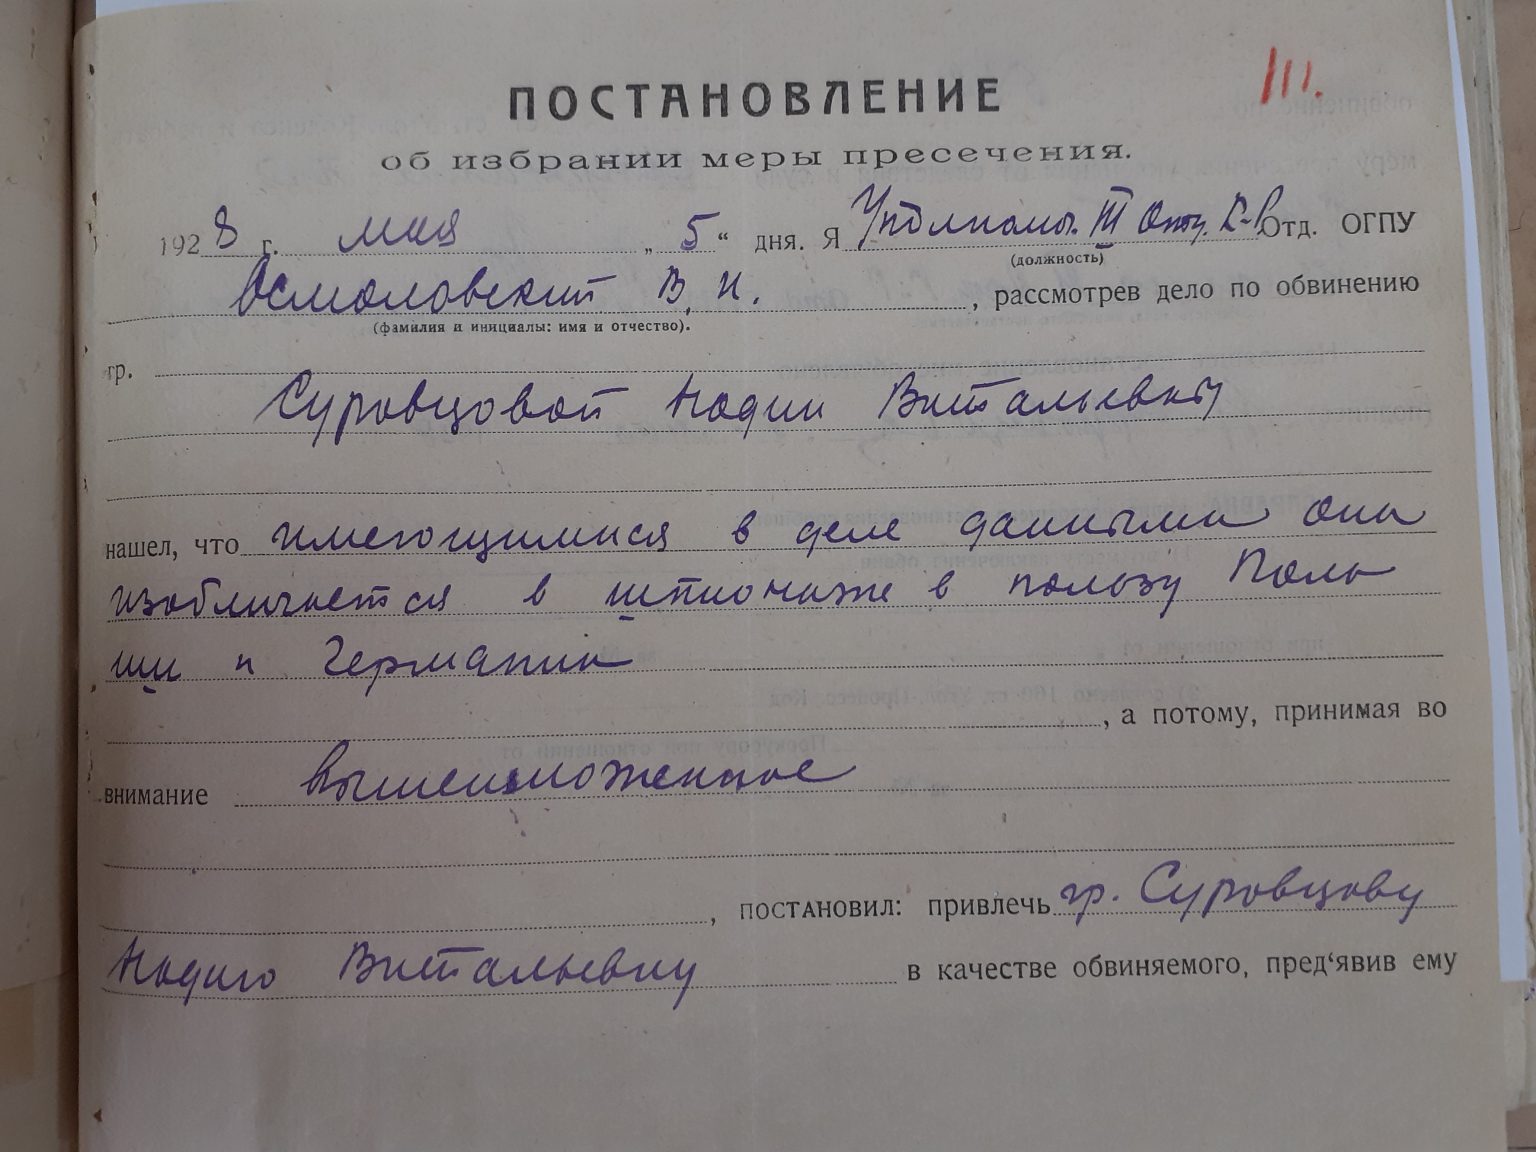 III.
ПОСТАНОВЛЕНИЕ
об избрании меры пресечения.
1928 г. мая „5“ дня. Я Уполном. III Отд. К-Р Отд. ОГПУ
(должность)
Осмоловский В. И. , рассмотрев дело по обвинению
(фамилия и инициалы: имя и отчество).
гр.
Суровцовой Надии Витальевны
нашел, что имеющимися в деле данными она
изобличается в шпионаже в пользу Поль
ши и Германии
, а потому, принимая во
внимание вышеизложенное
, постановил: привлечь гр. Суровцову
Надию Витальевну в качестве обвиняемого, пред‘явив ему